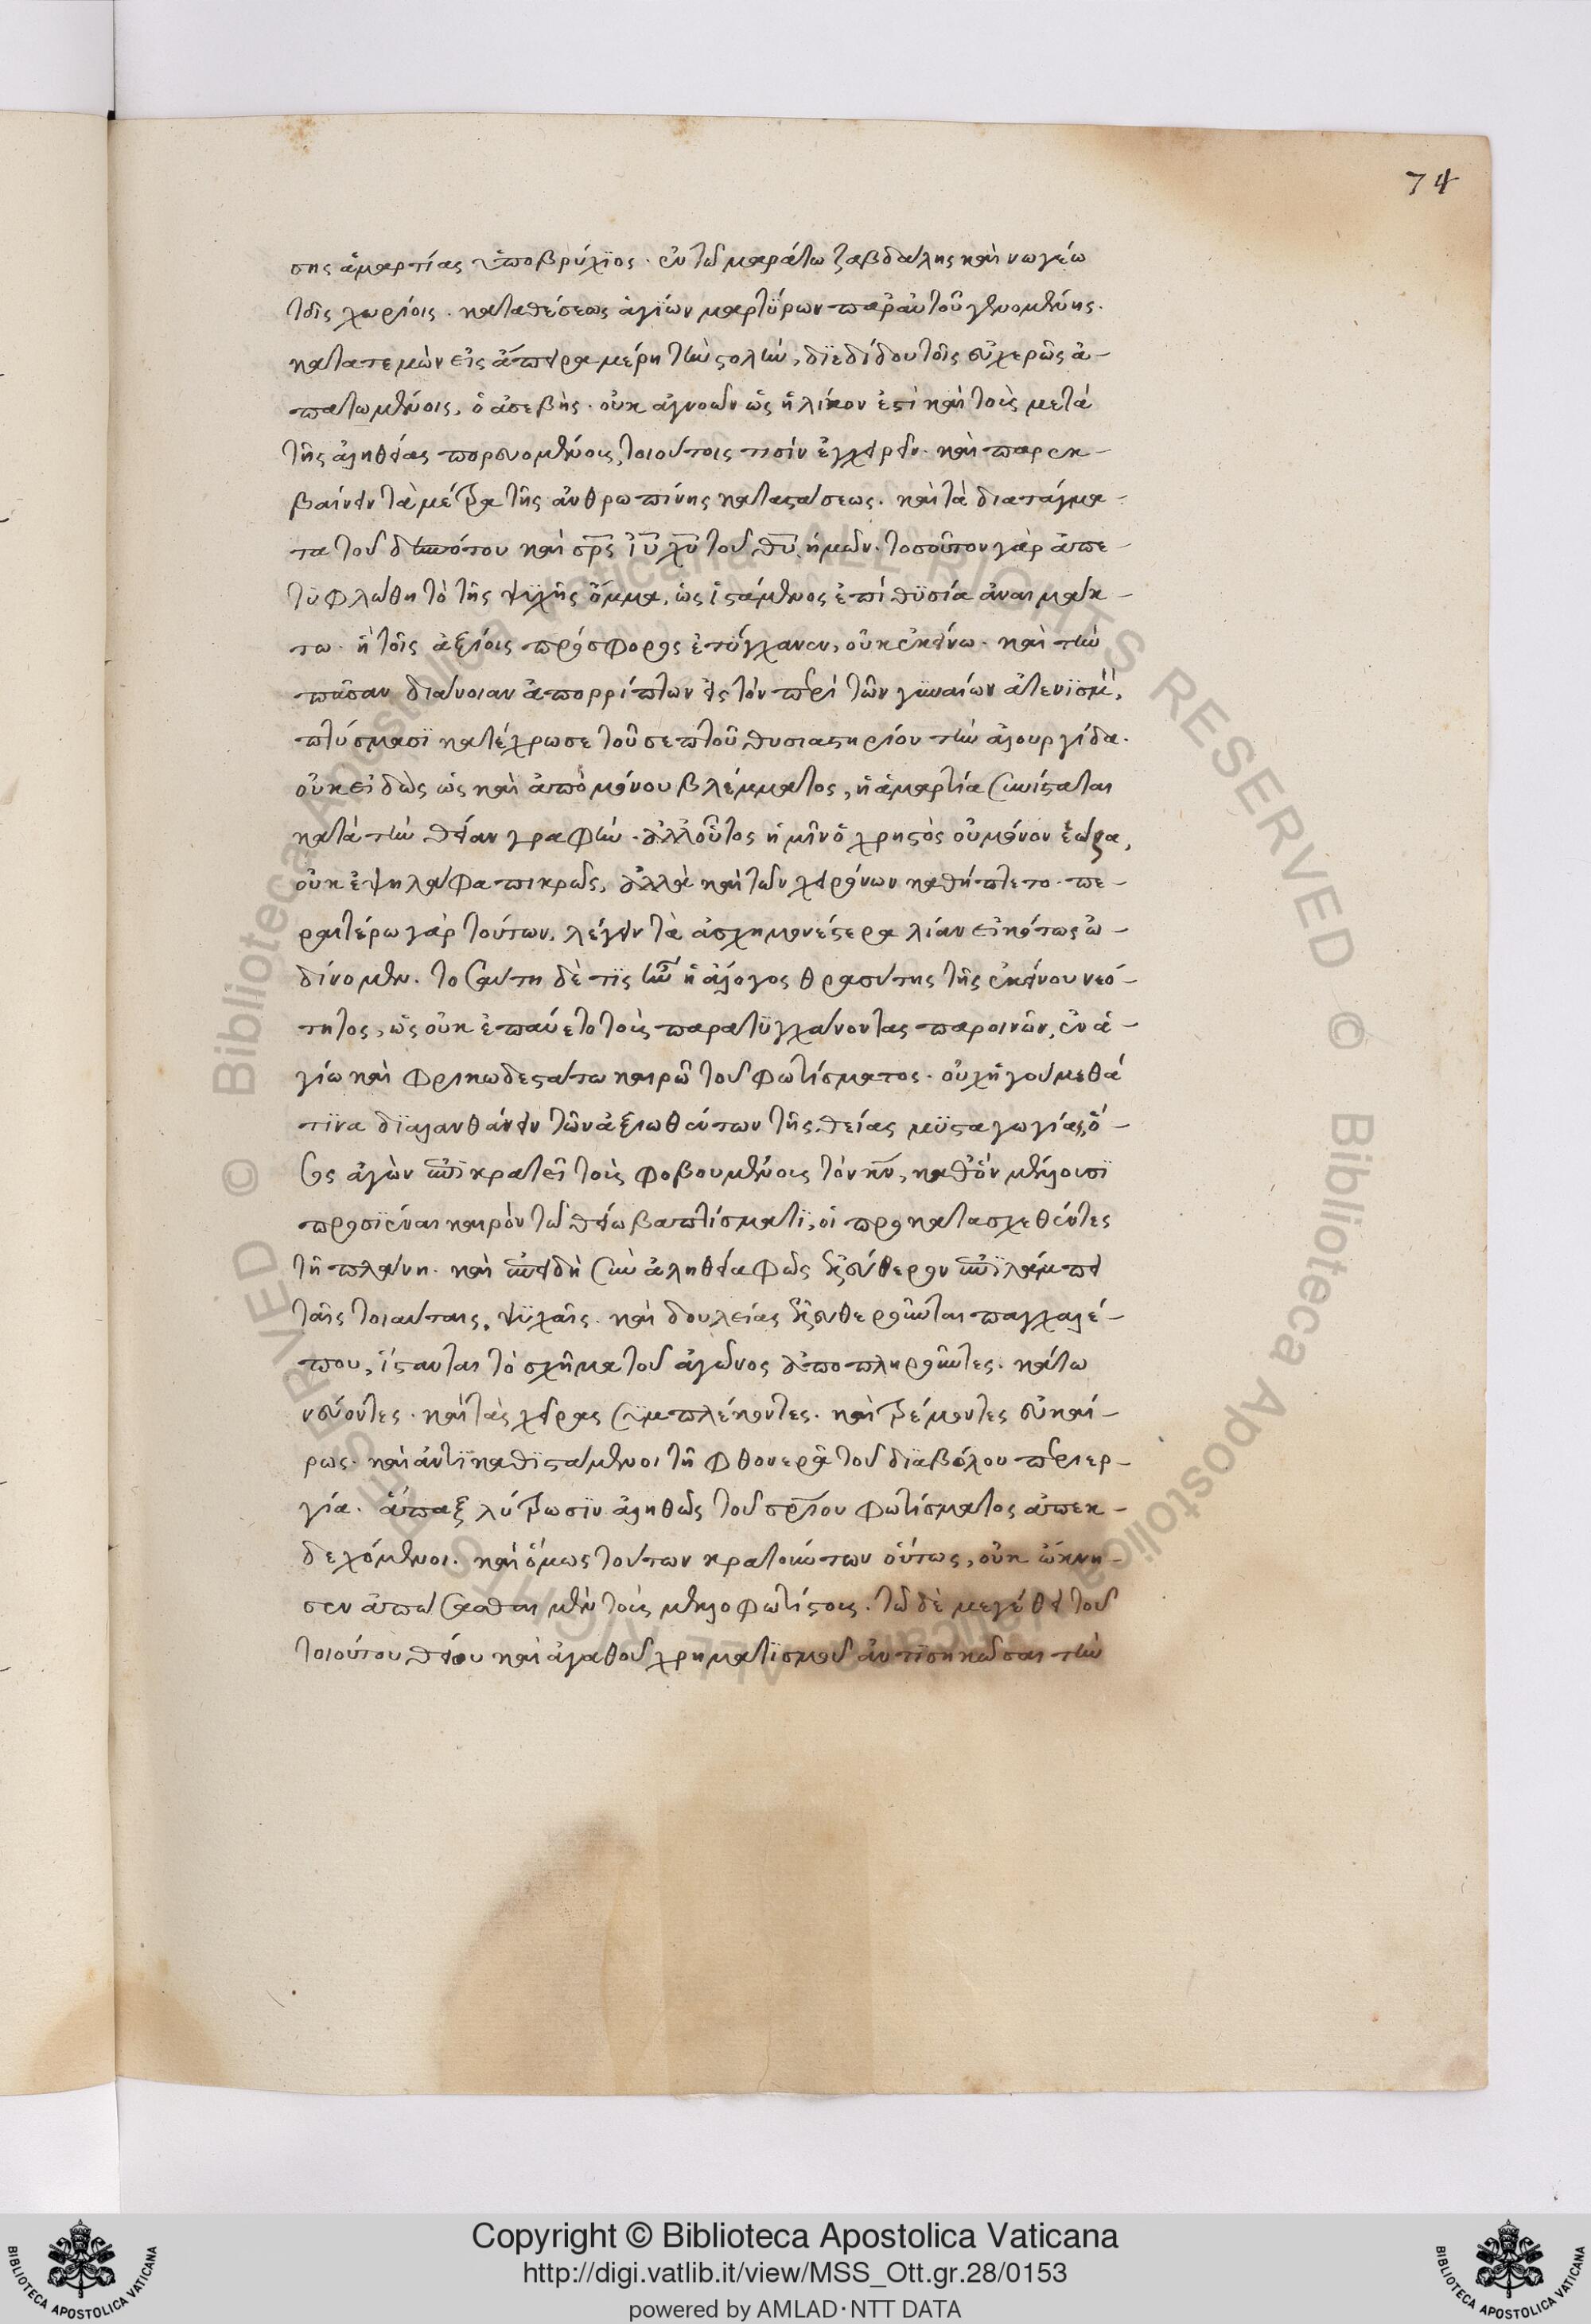 74
σης ἁμαρτίας ὑποβρύχϊος· ἐν τῶ μαράτω ζαβδαλης καὶ νωγέω
τοῖς χωρίοις· καταθέσεως ἁγίων μαρτϋρων παρ' αὐτοῦ γενομένης·
κατατεμὼν εἰς ἄπειρα μέρη τὴν στολὴν, δϊεδίδου τοῖς εὐχερῶς ἀ-
πατωμένοις, ὁ ἀσεβὴς· οὐκ ἀγνοῶν ὡς ἡλίκον ἐστὶ καὶ τοῖς μετὰ
τῆς ἀληθείας πορευομένοις, τοιούτοις τισὶν ἐγχειρεῖν· καὶ παρεκ-
βαίνειν τὰ μέτρα τῆς ἀνθρωπίνης καταστάσεως· καὶ τὰ διατάγμα-
τα τοῦ δεσπότου καὶ σρς ἰυ χυ τοῦ θυ ἡμῶν· τοσοῦτον γὰρ ἀπε-
τϋφλώθη τὸ τῆς ψϋχῆς ὄμμα, ὡς ἱστάμενος ἐπὶ θϋσία ἀναιμάκ-
τω· ἢ τοῖς ἀξίοις πρόσφορος ἐτύγχανεν, οὐκ ἐκείνω· καὶ τὴν
πᾶσαν διάνοιαν ἀπορρίπτων εἰς τὸν περὶ τῶν γυναίων ἀτενϊσμὸν,
πτύσμασϊ κατέχρωσε τοῦ σεπτοῦ θυσιαστηρίου τὴν ἁλουργίδα·
οὐκ εἰδὼς ὡς καὶ ἀπὸ μόνου βλέμματος, ἡ ἁμαρτία συνίσταται
κατὰ τὴν θείαν γραφὴν· ἀλλ' οὗτος ἡμῖν ὁ χρηστὸς οὐ μόνον ἑώρα,
οὐκ ἐψηλάφα πικρῶς, ἀλλὰ καὶ τῶν χειρόνων καθήπτετο· πε-
ραιτέρω γὰρ τούτων, λέγειν τὰ ἀσχημονέστερα λίαν εἰκότως ὠ-
δίνομεν. τοσαύτη δὲ τϊς ἦν ἡ ἄλογος θρασύτης τῆς ἐκείνου νεό-
τητος, ὡς οὐκ ἐπαύετο τοῖς παρατϋγχάνοντας παροινῶν, ἐν ἁ-
γίω καὶ φρικωδεστάτω καιρῶ τοῦ φωτίσματος· οὐχ ἡγούμεθά
τϊνα δϊαλανθάνειν τῶν ἀξιωθέντων τῆς θείας μϋσταγωγίας, ὅ-
σος ἀγὼν ἐπϊκρατεῖ τοῖς φοβουμένοις τὸν κν, καθ' ὃν μέλλουσϊ
προσϊέναι καιρὸν τῶ θείω βαπτίσματϊ, οἱ προκατασχεθέντες
τῆ πλάνη· καὶ ἐπειδὴ σὺν ἀληθεία φῶς ἐλεύθερον ἐπϊλάμπει
ταῖς τοιαύταις, ψϋχαῖς· καὶ δουλείας ἐλευθεροῦνται παγχαλέ-
που, ἵστανται τὸ σχῆμα τοῦ ἀγῶνος ἀποπληροῦντες· κάτω
νεύοντες· καὶ τὰς χεῖρας συμπλέκοντες· καὶ τρέμοντες εὐκαί-
ρως· καὶ ἀντϊκαθϊστάμενοι τῆ φθονερᾶ τοῦ δϊαβόλου περιερ-
γία· ἅπαξ λύτρωσϊν ἀληθῶς τοῦ σρίου φωτίσματος ἀπεκ-
δεχόμενοι· καὶ ὅμως τούτων κρατούντων οὕτως, οὐκ ὤκνη-
σεν ἀπώσασθαι μὲν τοῖς μελλοφωτίστοις· τῶ δὲ μεγέθει τοῦ
τοιούτου θείου καὶ ἀγαθοῦ χρηματϊσμοῦ ἀντϊσηκῶσαι τὴν
Copyright © Biblioteca Apostolica Vaticana
http://digi.vatlib.it/view/MSS_Ott.gr.28/0153
powered by AMLAD·NTT DATA
BIBLIOTECA APOSTOLICA VATICANA
BIBLIOTECA APOSTOLICA VATICANA
© Biblioteca Apostolica Vaticana ALL RIGHTS RESERVED
© Biblioteca Apostolica Vaticana ALL RIGHTS RESERVED